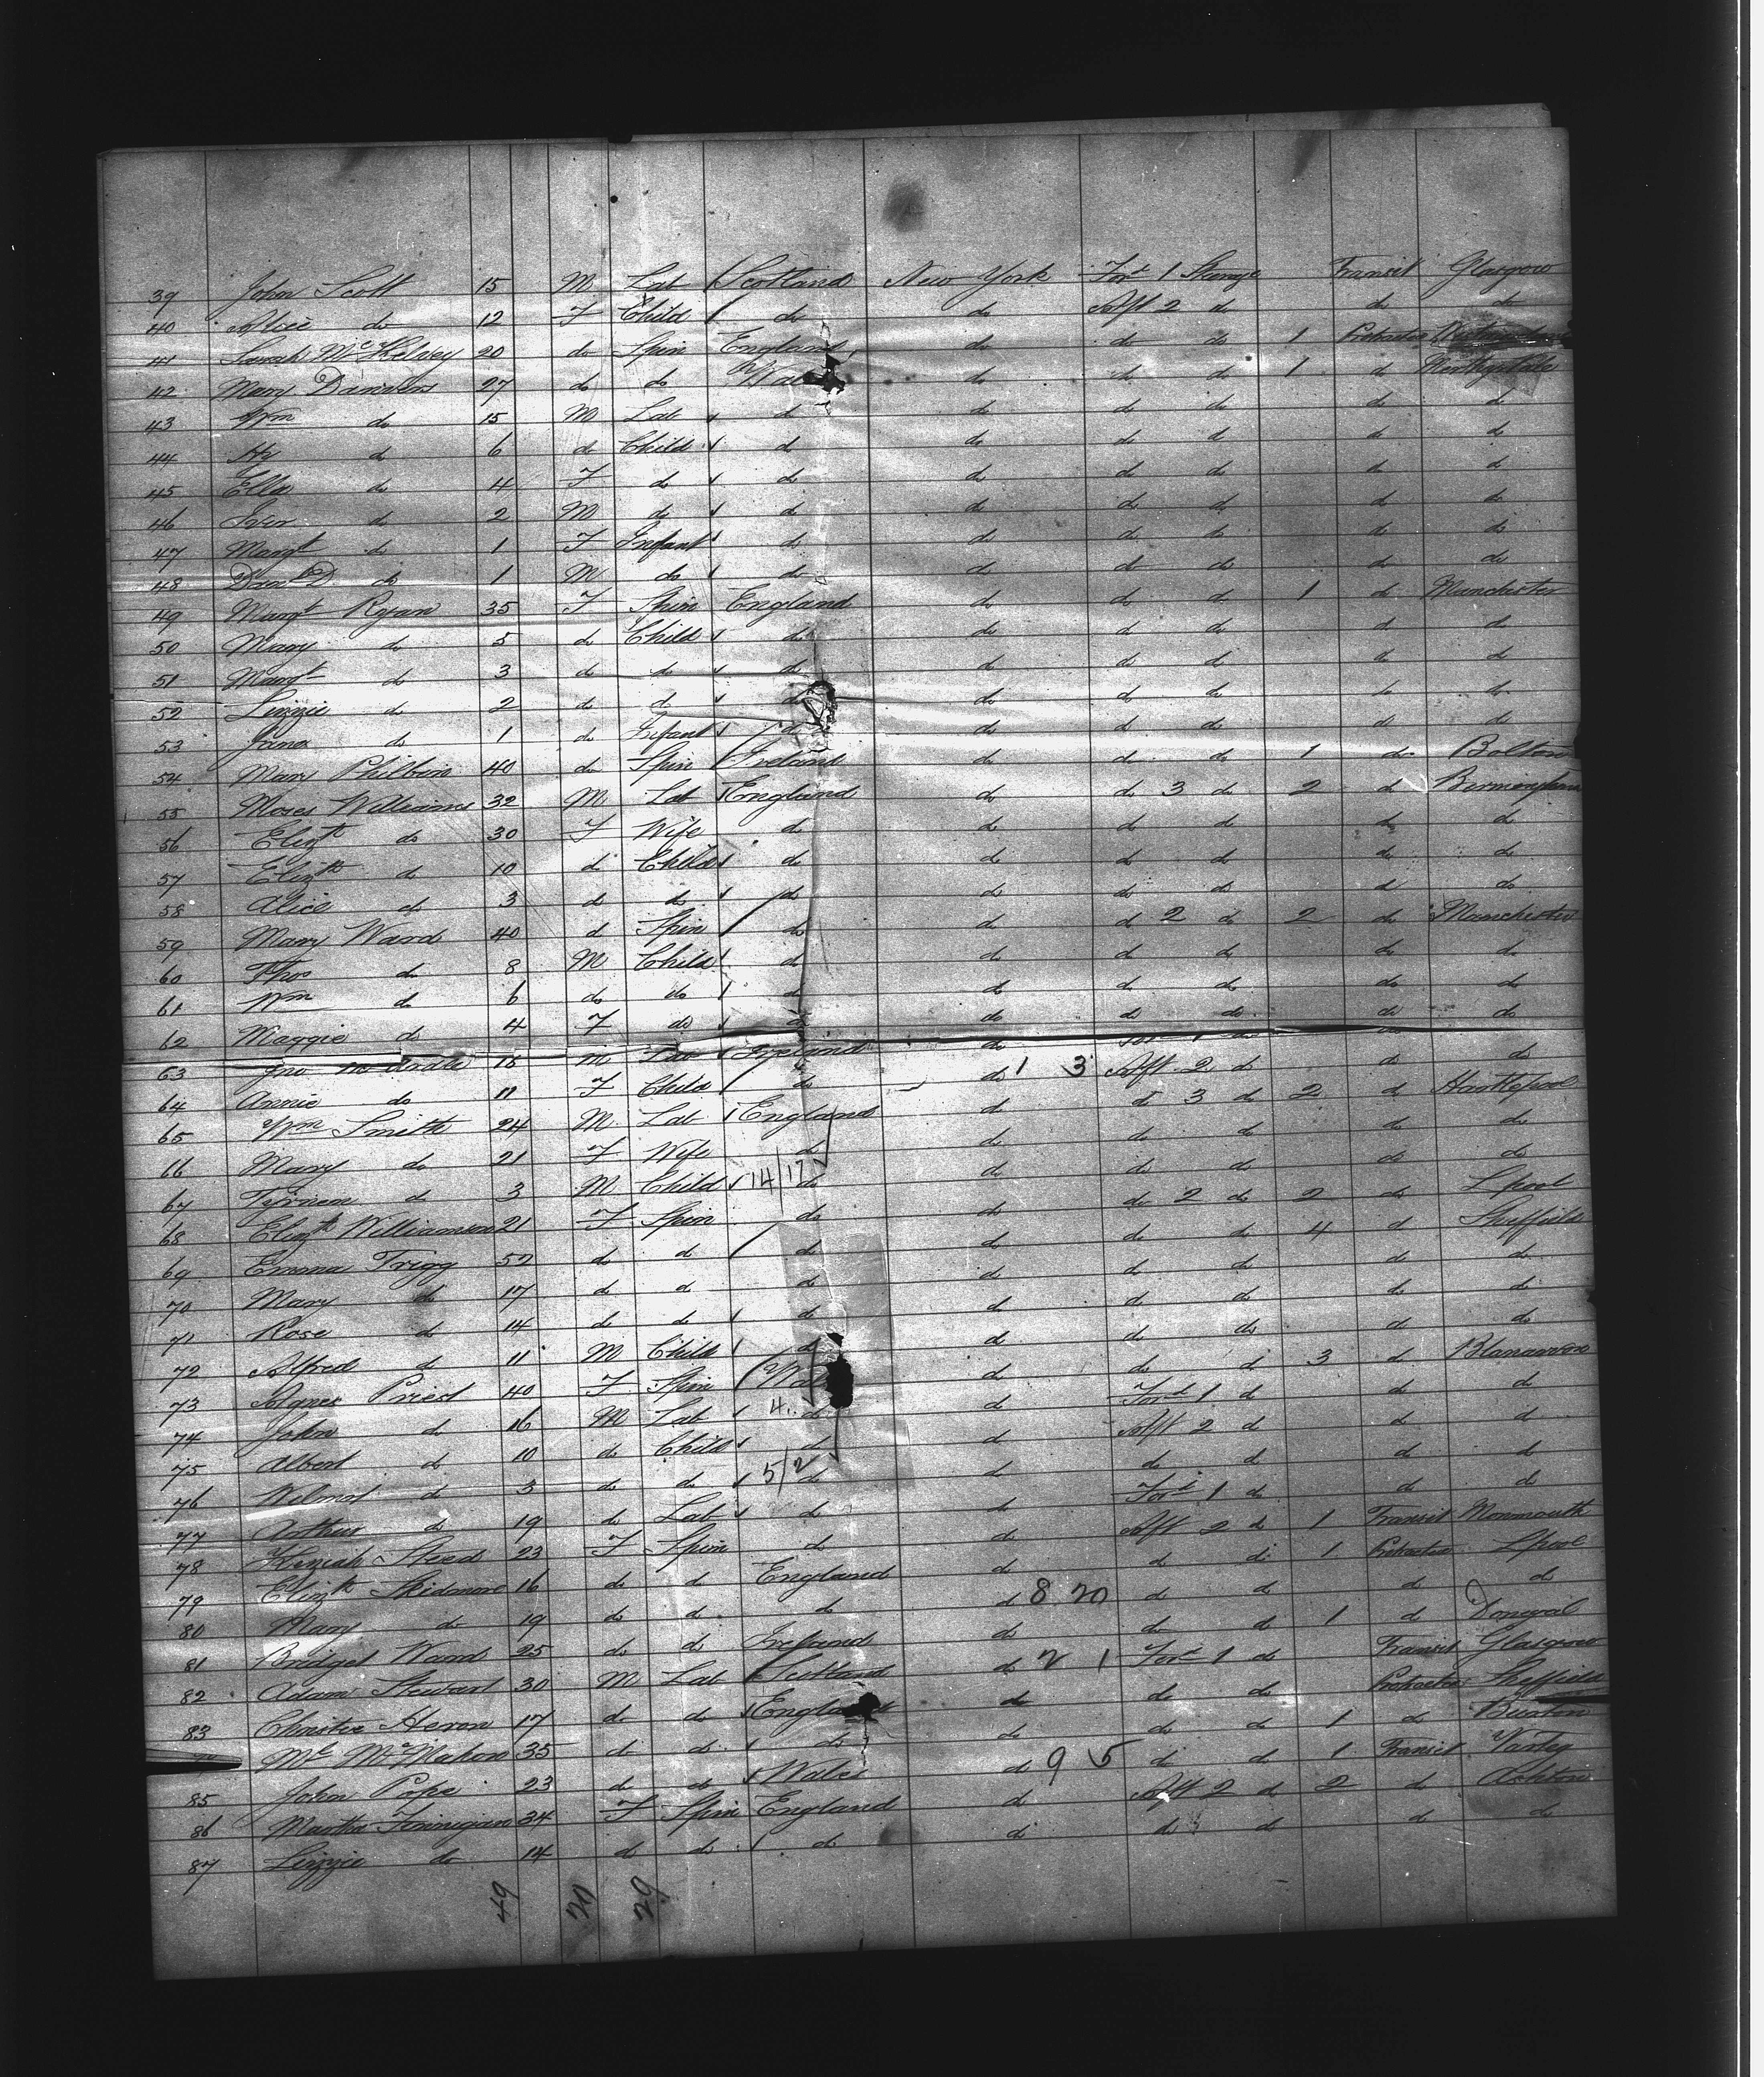 39 John Scott 15 M Lab Scotland New York Ford 1 Steerage Transit Glasgow
40 Alice do 12 F Child do do Aft 2 do do do
41 Sarah McKelvey 20 do Spin England do do do 1 Protracted
42 Mary Danvers 27 do do Wales do do do 1 do
43 Wm do 15 M Lab do do do do do do
44 do 6 do Child do do do do do do
45 Ella do 4 F do do do do do do do
46 do 2 M do do do do do do do
47 Margt do 1 F Infant do do do do do do
48 do 1 M do do do do do do do
49 Margt Ryan 35 F Spin England do do do 1 do Manchester
50 Mary do 5 do Child do do do do do do
51 Margt do 3 do do do do do do do do
52 Lizzie do 2 do do do do do do do do
53 Jane do 1 do Infant do do do do do do
54 Mary Philbin 40 do Spin Ireland do do do 1 do Bolton
55 Moses Williams 32 M Lab England do do 3 do 2 do Birmingham
56 Elizth do 30 F Wife do do do do do do
57 Elizth do 10 do Child do do do do do do
58 Alice do 3 do do do do do do do do
59 Mary Ward 40 do Spin do do do 2 do 2 do Manchester
60 Thos do 8 M Child do do do do do do
61 Wm do 6 do do do do do do do do
62 Maggie do 4 F do do do do do do do
63 Jno McArdle 15 M Lab Ireland do do
64 Annie do 11 F Child do do 1 3 Aft 2 do do do
65 Wm Smith 24 M Lab England do do 3 do 2 do Hartlepool
66 Mary do 21 F Wife do do do do do do
67 do 3 M Child 14/17 do do do do do do
68 Elizth Williamson 21 F Spin do do do 2 do 2 do Lpool
69 Emma Trigg 52 do do do do do do 4 do Sheffield
70 Mary do 17 do do do do do do do do
71 Rose do 14 do do do do do do do do
72 Alfred do 11 M Child do do do do do do
73 Agnes Priest 40 F Spin Wales do do do 3 do
74 John do 16 M Lab 4 do do Ford 1 do do do
75 Albert do 10 do Child do do Aft 2 do do do
76 Wilmot do 3 do do 5/2 do do do do do do
77 Arthur do 19 do Lab do do Ford 1 do do do
78 Keziah Steed 23 F Spin do do Aft 2 do 1 Transit Monmouth
79 Elizth Skidmore 16 do do England do do do 1 Protracted Lpool
80 Mary do 19 do do do do 8 20 do do do do
81 Bridget Ward 25 do do Ireland do do do 1 do Donegal
82 Adam Stewart 30 M Lab Scotland do 2 1 Ford 1 do Transit Glasgow
83 Christie Heron 17 do do England do do do Protracted Sheffield
Ml McMahon 35 do do do do do do 1 do Buxton
85 John Pope 23 do do Wales do 9 5 do do 1 Transit
86 Martha Finnigan 34 F Spin England do Aft 2 do 2 do Ashton
87 Lizzie do 14 do do do do do do do do
49 20 29